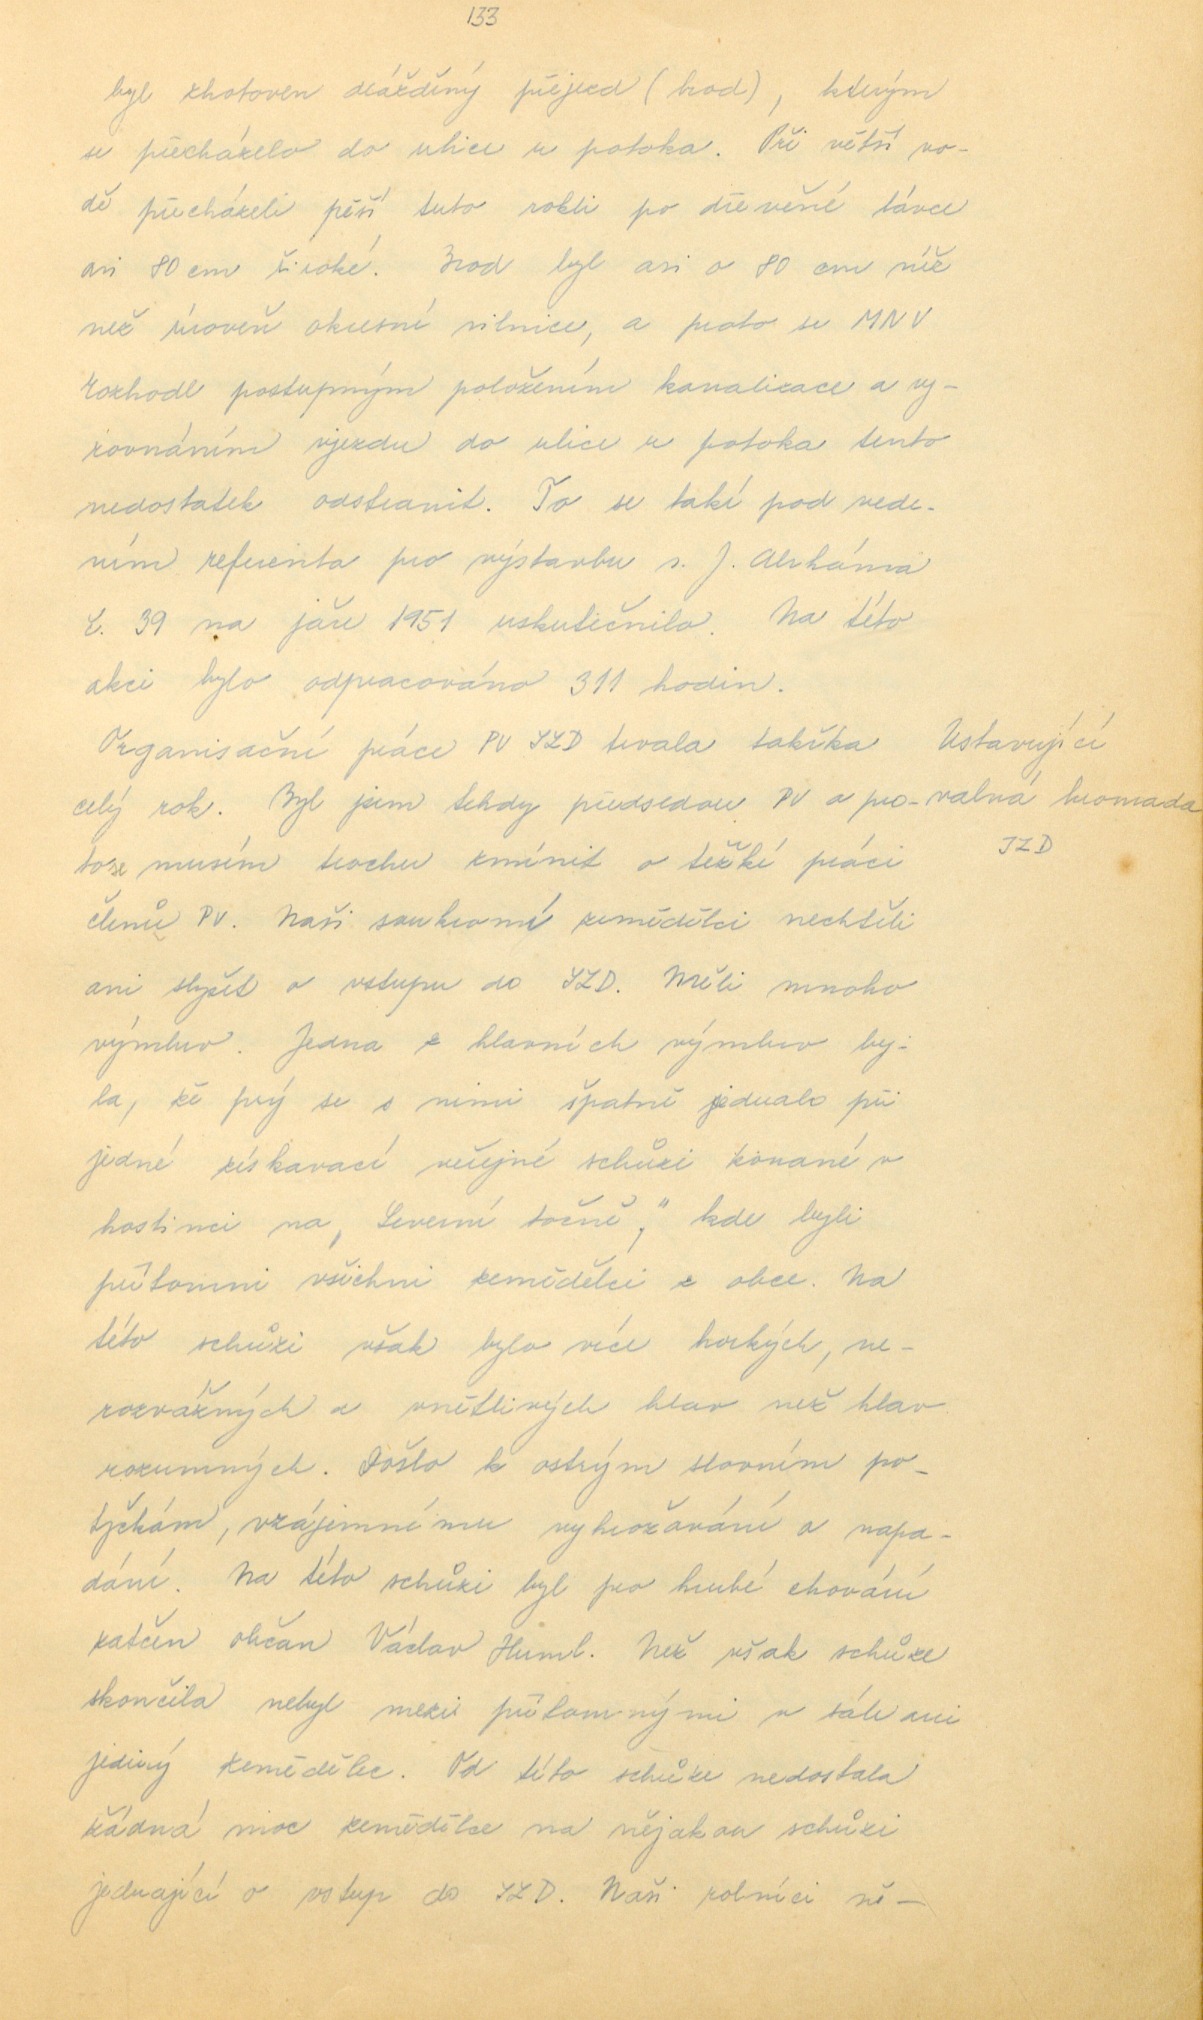 133
byl zhotoven dlážděný příjezd (brod), kterým
se přecházelo do ulice u potoka. Při větší vo-
dě přecházeli pěší tuto rokli po dřevěné lávce
asi 80 cm široké. Brod byl asi o 80 cm níž
než úroveň okresní silnice, a proto se MNV
rozhodl postupným položením kanalizace a vy-
rovnáním vjezdu do ulice u potoka tento
nedostatek odstranit. To se také pod vede-
ním referenta pro výstavbu s. J.
č. 39 na jaře 1951 uskutečnilo. Na této
akci bylo odpracováno 311 hodin.
Organisační práce PV JZD trvala takřka
celý rok. Byl jsem tehdy předsedou PV a pro-
to se musím trochu zmínit o težké práci
členů PV. Naši soukromí zemědělci nechtěli
ani slyšet o vstupu do JZD. Měli mnoho
výmluv. Jedna z hlavních výmluv by-
la, že prý se s nimi špatně jednalo při
jedné získavací veřejné schůzi konané v
hostinci na „Severní točně," kde byli
přítomni všichni zemědělci z obce. Na
této schůzi však bylo více horkých, ne-
rozvážných a vznětlivých hlav než hlav
rozumných. Došlo k ostrým slovním po-
tyčkám, vzájemnému vyhrožování a napa-
dání. Na této schůzi byl pro hrubé chování
zatčen občan Václav Huml. Než však schůze
skončila nebyl mezi přítomnými v sále ani
jediný zemědělec. Od této schůze nedostala
žádná moc zemědělce na nějakou schůzi
jednající o vstup do JZD. Naši rolníci ně-
Ustavující
valná hromada
JZD